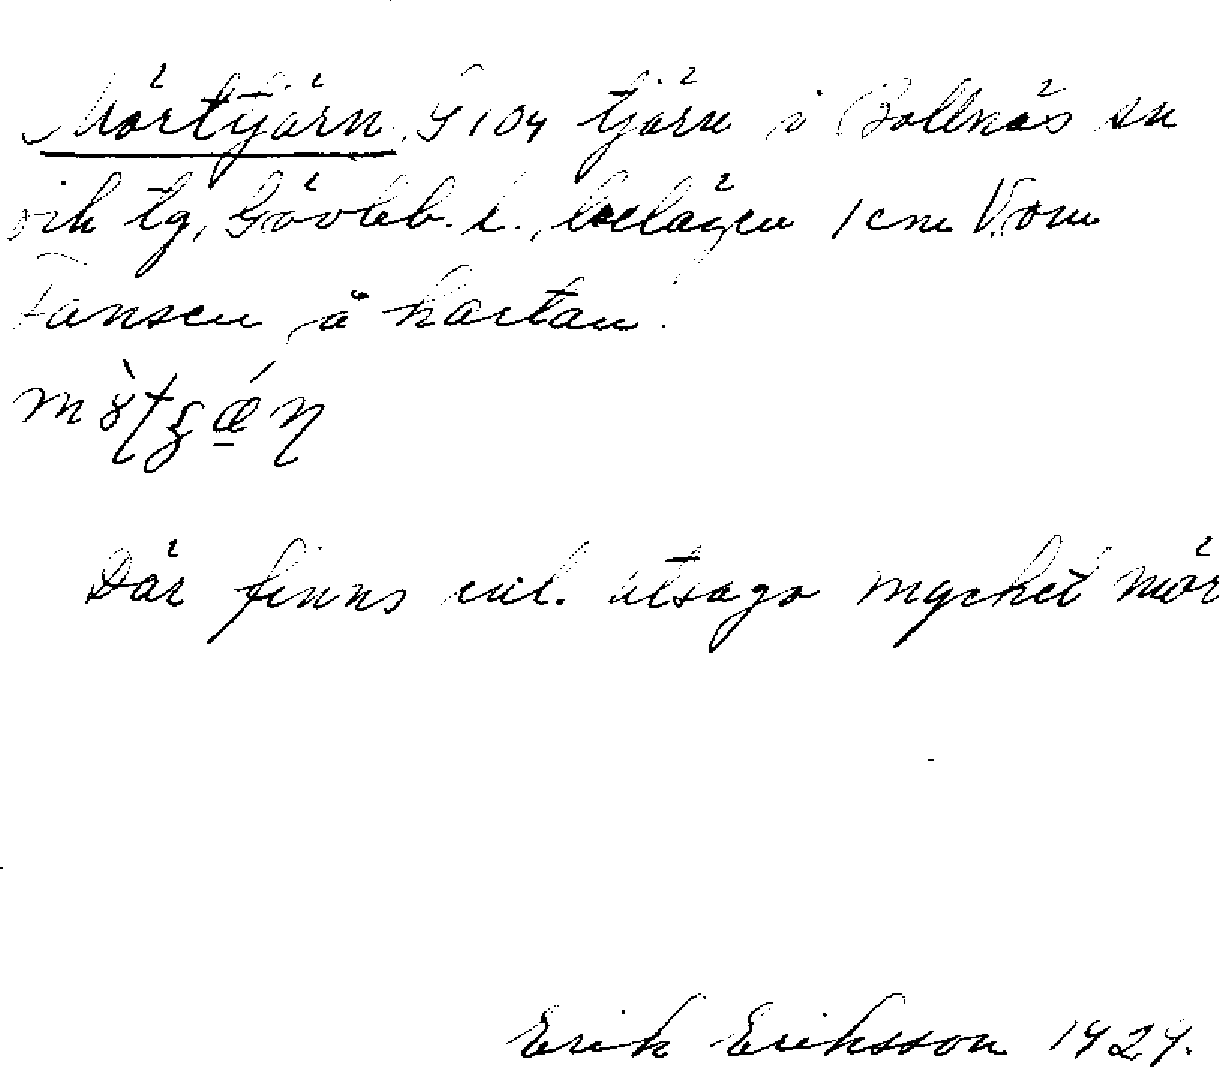 Mörtjärn, G 104 tjärn i Bollnäs sn
och tg, Gävleb. l., belägen 1 cm V. om
Fansen å kartan.
Där finns enl. utsago mycket mör
Erik Eriksson 1929.